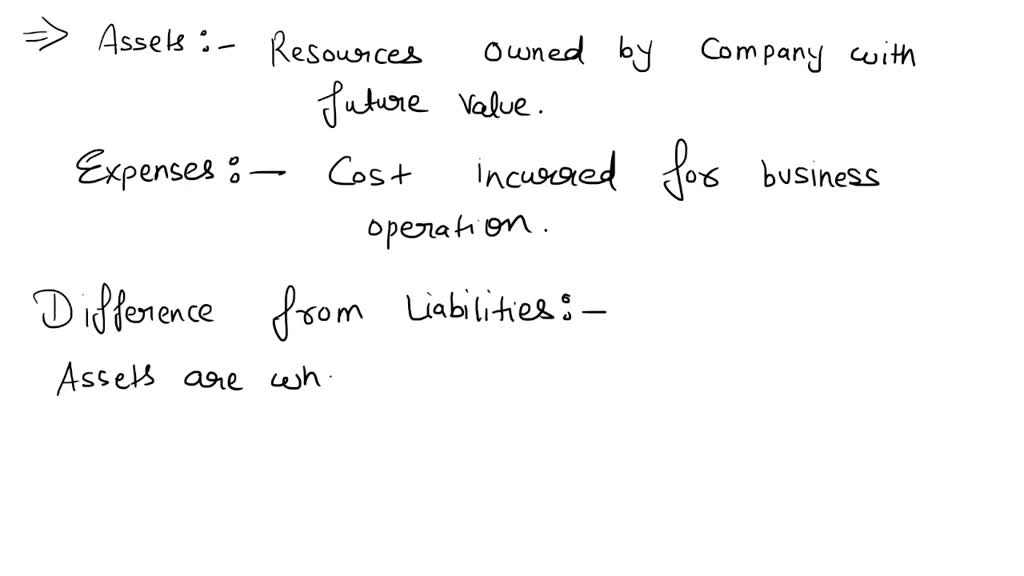 ⇒ Assets :- Resources owned by Company with
future value.
Expenses :- Cost incurred for business
operation.
Difference from Liabilities :-
Assets are wh.